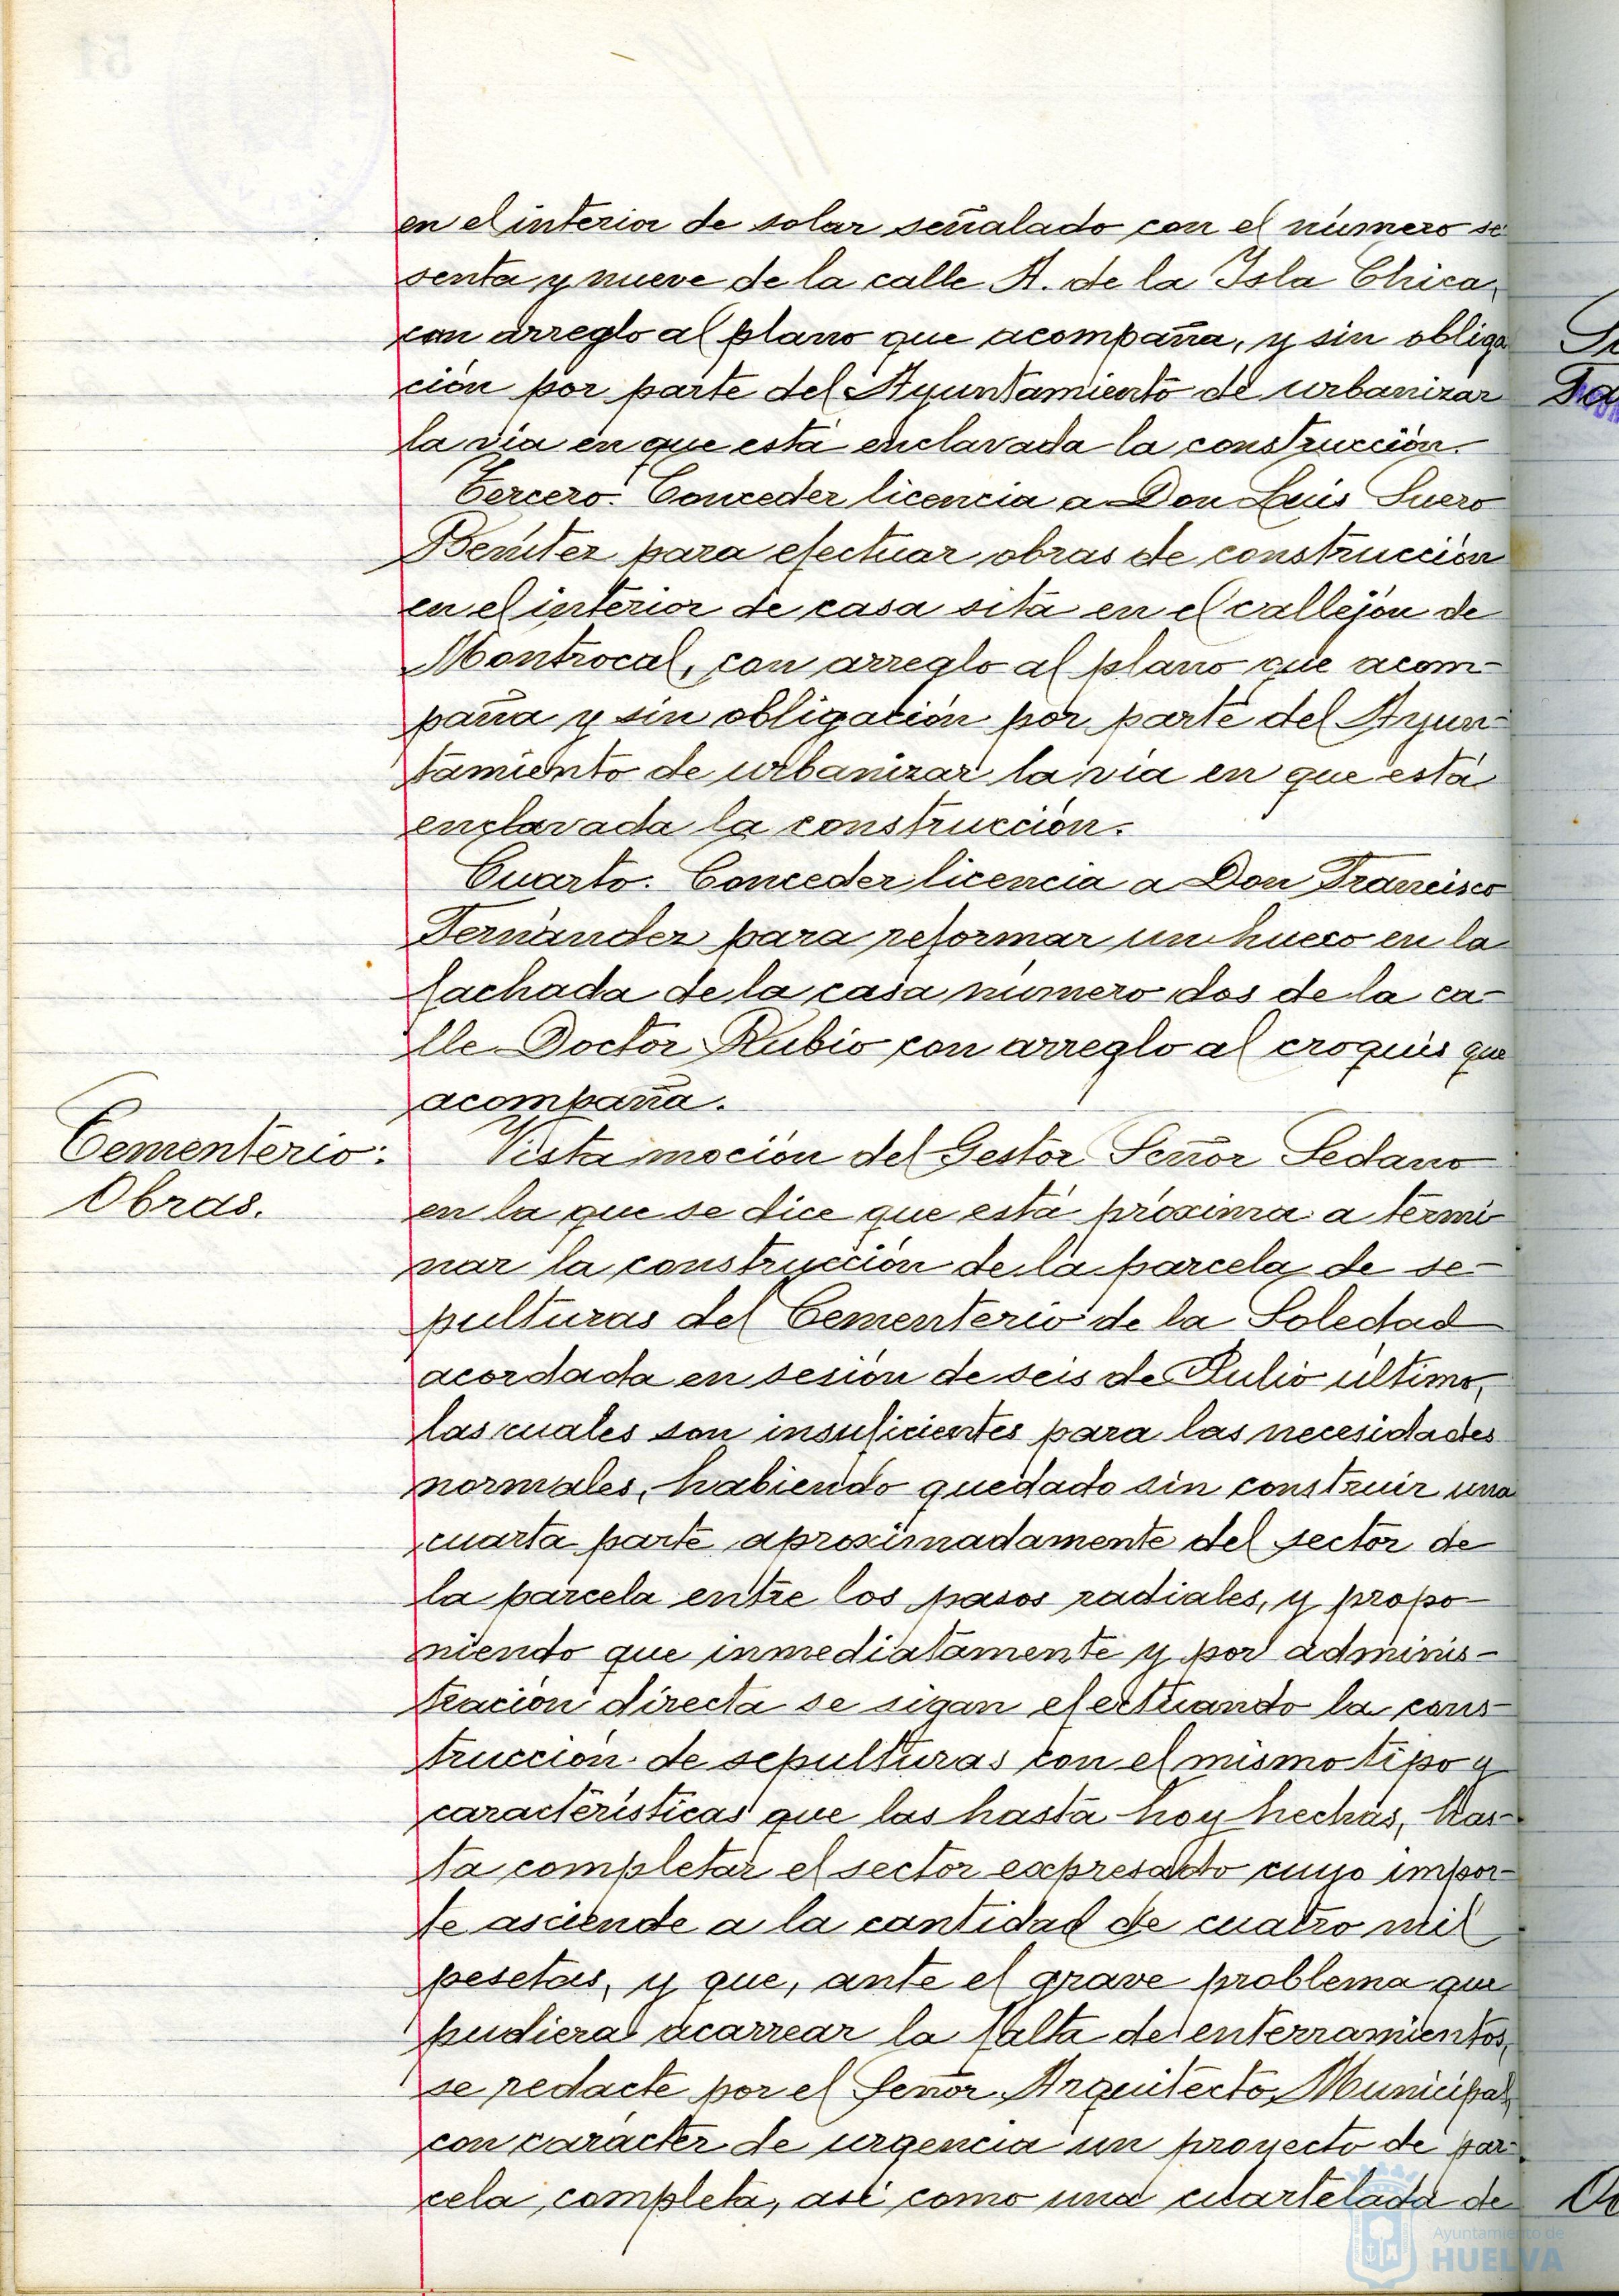 en el interior de solar señalado con el número se
senta y nueve de la calle A. de la Isla Chica,
con arreglo al plano que acompaña, y sin obliga
ción por parte del Ayuntamiento de urbanizar
la via en que está enclavada la construcción.
Tercero. Conceder licencia a Don Luis Suero
Benitez para efectuar obras de construcción
en el interior de casa sita en el callejón de
Montrocal, con arreglo al plano que acom-
paña y sin obligación por parte del Ayun-
tamiento de urbanizar la via en que está
enclavada la construcción.
Cuarto. Conceder licencia a Don Francisco
Fernández para reformar un hueco en la
fachada de la casa número dos de la ca-
lle Doctor Rubio con arreglo al croquis que
acompaña.
Cementerio:
Obras.
Vista moción del Gestor Señor Sedano
en la que se dice que está próxima a termi
nar la construcción de la parcela de se-
pulturas del Cementerio de la Soledad
acordada en sesión de seis de Julio último,
las cuales son insuficientes para las necesidades
normales, habiendo quedado sin construir una
cuarta parte aproximadamente del sector de
la parcela entre los pasos radiales, y propo-
niendo que inmediatamente y por adminis-
tración directa se sigan efectuando la cons-
trucción de sepulturas con el mismo tipo y
características que las hasta hoy hechas, has-
ta completar el sector expresado cuyo impor-
te asciende a la cantidad de cuatro mil
pesetas, y que, ante el grave problema que
pudiera acarrear la falta de enterramientos,
se redacte por el Señor Arquitecto Municipal,
con carácter de urgencia un proyecto de par-
cela completa, así como una cuartelada de
Ayuntamiento de
HUELVA